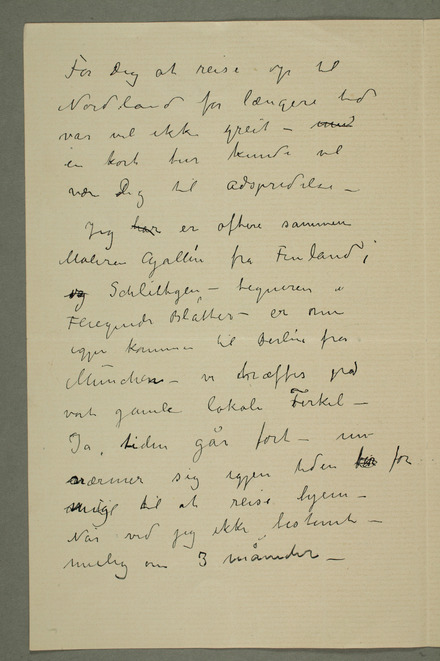 For Dig at reise op til
Nordland for længere tid
var vel ikke greit –
en kort tur kunde vel
vær Dig til adspredelse –
Jeg har er oftere sammen
Maleren Gallén fra Finland,
og Schlittgen – tegneren i
Fliegende Blätter – er nu
igjen kommen til Berlin fra
München – vi træffes på
vort gamle lokale Ferkel –
Ja, tiden går fort – nu
nærmer sig igjen tiden for
mig til at reise hjem –
Når ved jeg ikke bestemt –
mulig om 3 måneder –